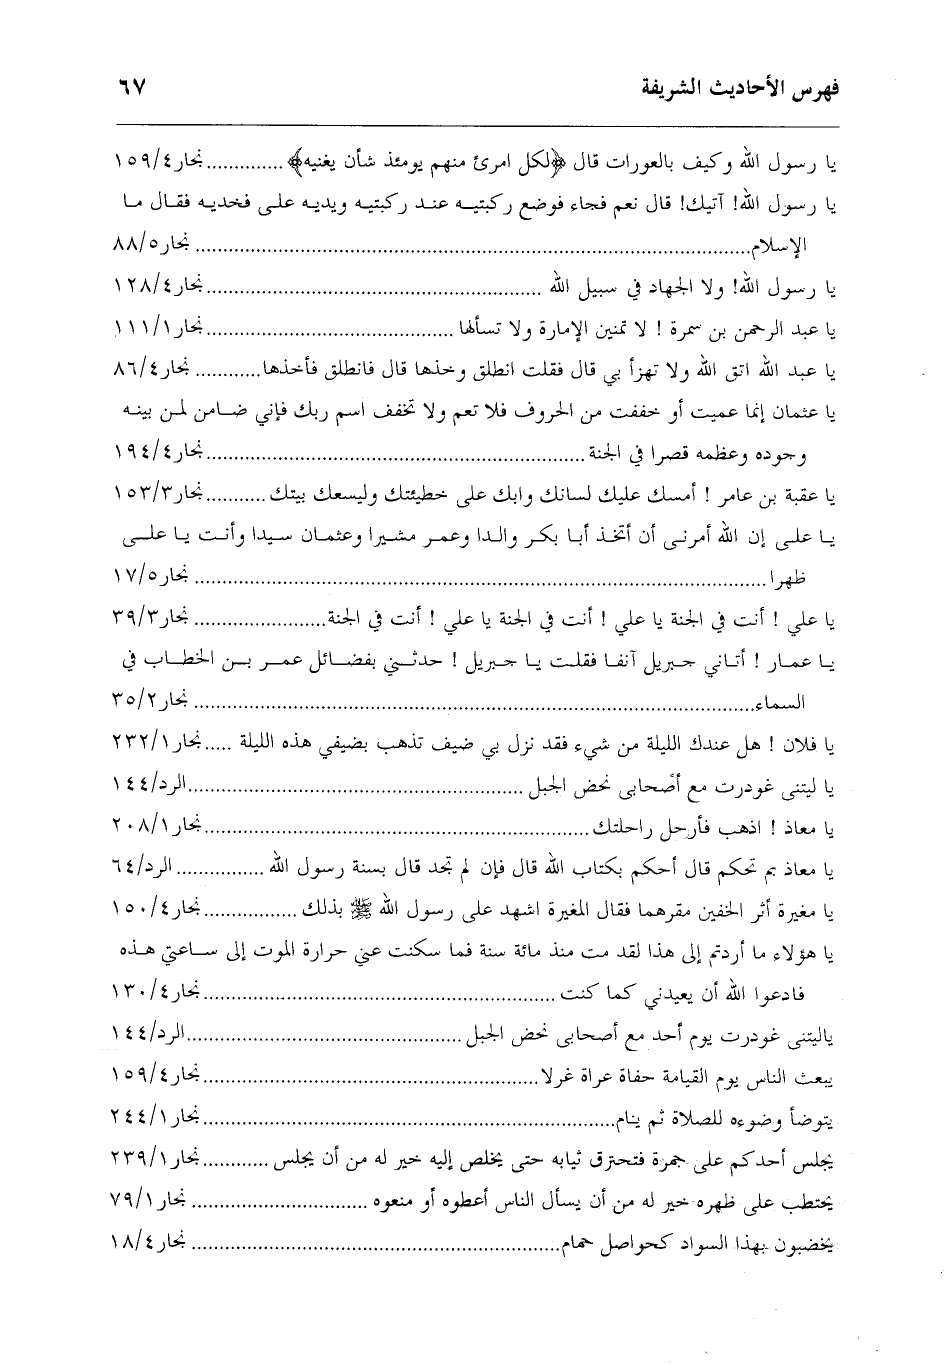 فهرس الأحاديث الشريفة ٦٧
يا رسول الله وكيف بالعورات قال ﴿لكل امرئ منهم يومئذ شأن يغنيه﴾ ............. نجار٤/١٥٩
يا رسول الله! آتيك! قال نعم فجاء فوضع ركبتيه عند ركبتيه ويديه على فخديه فقال ما
الإسلام............. نجار٥/٨٨
يا رسول الله! ولا الجهاد في سبيل الله ............. نجار٤/١٢٨
يا عبد الرحمن بن سمرة ! لا تمنين الإمارة ولا تسألها............. نجار١/١١١
يا عبد الله اتق الله ولا تهزأ بي قال فقلت انطلق وخذها قال فانطلق فأخذها............ نجار٤/٨٦
يا عثمان إنما عميت أو خففت من الحروف فلا تعم ولا تخفف اسم ربك فإني ضامن لمن بينه
وجوده وعظمه قصرا في الجنة............. نجار٤/١٩٤
يا عقبة بن عامر ! أمسك عليك لسانك وابك على خطيئتك وليسعك بيتك ...........نجار٣/١٥٣
يا على إن الله أمرنى أن أتخذ أبا بكر والدا وعمر مشيرا وعثمان سيدا وأنت يا على
ظهرا............. نجار٥/١٧
يا علي ! أنت في الجنة يا علي ! أنت في الجنة يا علي ! أنت في الجنة............. نجار٣/٣٩
يا عمار ! أتاني جبريل آنفا فقلت يا جبريل ! حدثني بفضائل عمر بن الخطاب في
السماء............. نجار٢/٣٥
يا فلان ! هل عندك الليلة من شيء فقد نزل بي ضيف تذهب بضيفي هذه الليلة .....نجار١/٢٣٢
يا ليتنى غودرت مع أضحابى نحض الجبل .............الرد/١٤٤
يا معاذ ! اذهب فأرحل راحلتك.............نجار١/٢٠٨
يا معاذ بم تحكم قال أحكم بكتاب الله قال فإن لم تجد قال بسنة رسول الله ................ الرد/٦٤
يا مغيرة أثر الخفين مقرهما فقال المغيرة اشهد على رسول الله ﷺ بذلك .................نجار٤/١٥٠
يا هؤلاء ما أردتم إلى هذا لقد مت منذ مائة سنة فما سكنت عني حرارة الموت إلى ساعتي هذه
فادعوا الله أن يعيدني كما كنت .............نجار٤/١٣٠
ياليتنى غودرت يوم أحد مع أصحابى نحض الجبل .............الرد/١٤٤
يبعث الناس يوم القيامة حفاة عراة غرلا.............نجار٤/١٥٩
يتوضأ وضوءه للصلاة ثم ينام.............نجار١/٢٤٤
يجلس أحدكم على جمرة فتحترق ثيابه حتى يخلص إليه خير له من أن يجلس ............نجار١/٢٣٩
يحتطب على ظهره خير له من أن يسأل الناس أعطوه أو منعوه ............. نجار١/٧٩
يخضبون بهذا السواد كحواصل حمام............. نجار٤/١٨